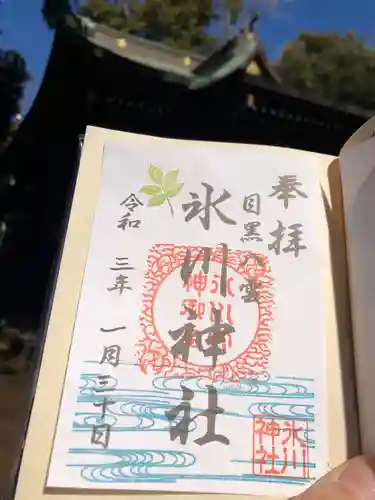 奉拝
目黒八雲
氷川神社
令和三年一月三十日
氷川
神社